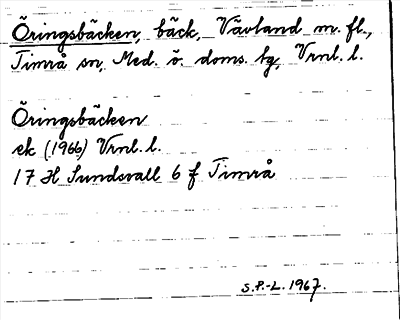 Öringsbäcken, bäck, Vävland m. fl.,
Timrå sn, Med. ö. doms. tg, Vrnl. l.
Öringsbäcken
ek (1966) Vrnl. l.
17 H Sundsvall 6 f Timrå
S.P.-L. 1967.